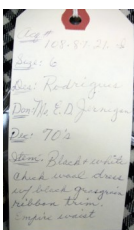 108.81.21.6
Size: 6
Des: Rodrigues
Don: Mr E.D. Jernigan
Dec: 70's
Item: Black & white
thick wool dress
w/ black grosgrain
ribbon trim.
Empire waist